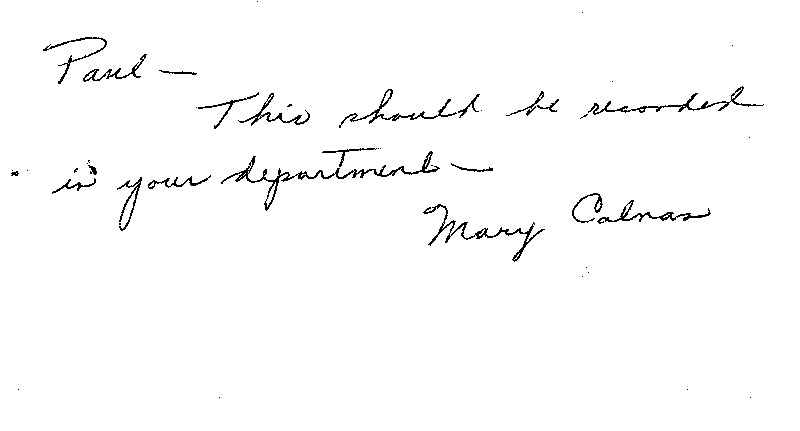 Paul —
This should be recorded
in your department —
Mary Calnas